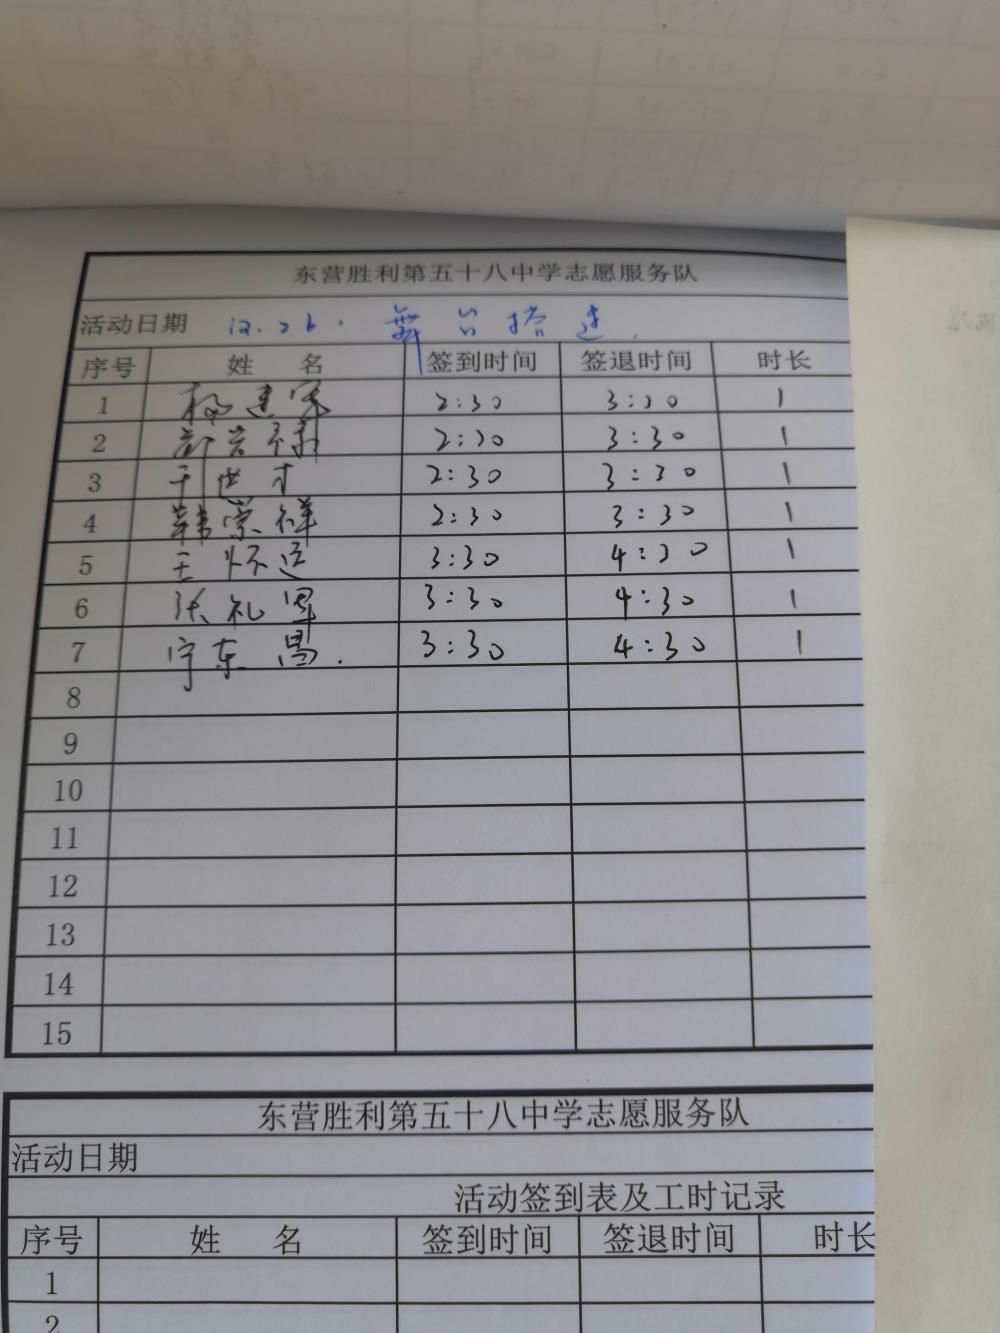 东营胜利第五十八中学志愿服务队
活动日期 12.26. 舞台搭建.
序号 姓 名 签到时间 签退时间 时长
1 杨建军 2:30 3:30 1
2 2:30 3:30 1
3 于世才 2:30 3:30 1
4 韩宗祥 2:30 3:30 1
5 王怀运 3:30 4:30 1
6 礼军 3:30 4:30 1
7 宁东昌. 3:30 4:30 1
8
9
10
11
12
13
14
15
东营胜利第五十八中学志愿服务队
活动日期
活动签到表及工时记录
序号 姓 名 签到时间 签退时间 时长
1
2